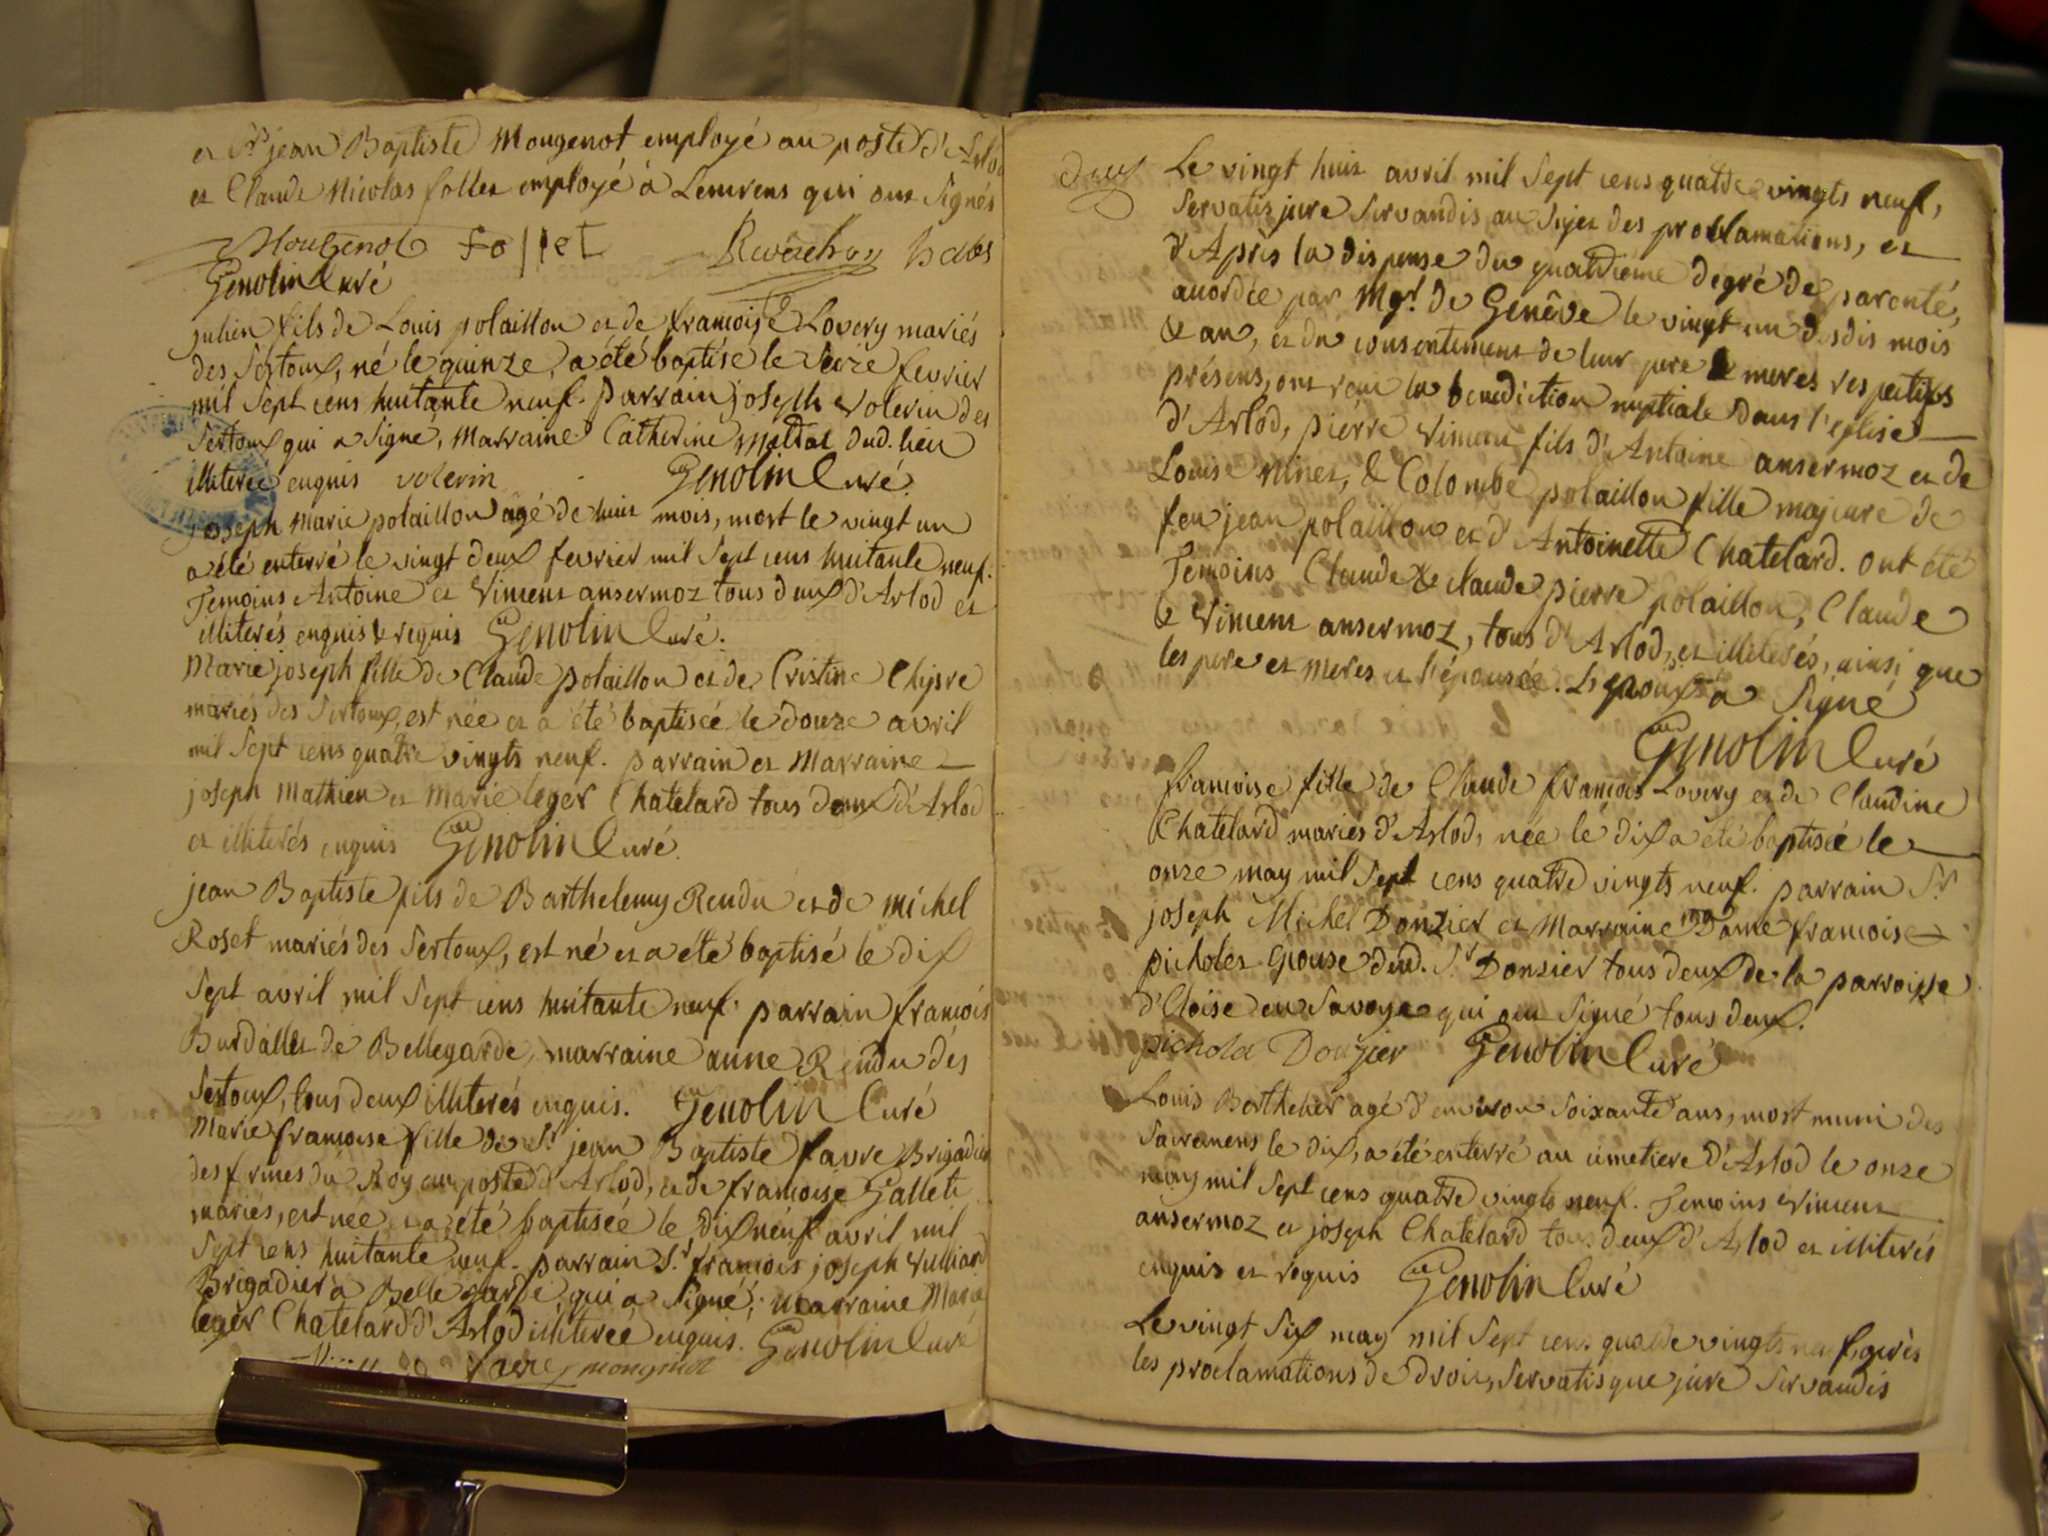 et Sr jean Baptiste Mougenot employé au poste d'Arlo
et Claude Nicolas follet employé à Lemrens qui ont Signés
Mougenot Follet
Genolin Curé
julien fils de Louis polaillon et de francoise Lovery mariés
des Sertoux, né le quinze, a été baptisé le Seize fevrier
mil Sept cens huitante neuf. parrain joseph volerin des
Sertoux qui a Signé, Marraine Catherine dud. lieu
illiterée enquis volerin Genolin Curé.
joseph Marie polaillon agé de huit mois, mort le vingt un
a été enterré le vingt deux fevrier mil Sept cens huitante neuf.
Temoins Antoine et Vincent ansermoz tous deux d'Arlod et
illiterés enquis & requis Genolin Curé.
Marie joseph fille de Claude polaillon et de Cristine Chipre
mariés des Sertoux, est née et a été baptisée le douze avril
mil Sept cens quatre vingts neuf. parrain et Marraine
joseph Mathieu et Marie leger Chatelard tous deux d'Arlod
et illiterés enquis Genolin Curé.
jean Baptiste fils de Barthelemy Rendu et de Michel
Roset mariés des Sertoux, est né et a été baptisé le dix
Sept avril mil Sept cens huitante neuf. parrain francois
Burdallet de Bellegarde, marraine anne Rendu des
Sertoux, tous deux illiterés enquis. Genolin Curé
Marie francoise fille de Sr. jean Baptiste favre Brigadier
des frmes du Roy au poste d'Arlod, et de francoise Gallet
mariés, est née et a été baptisée le dix neuf avril mil
Sept cens huitante neuf. parrain Sr. francois joseph Vulliard
Brigadier à Bellegarde qui a Signé, Marraine Marie
leger Chatelard d'Arlod illiterée enquis. Genolin Curé
deux
Le vingt huit avril mil Sept cens quatre vingts neuf,
Servatis jure Servandis au Sujet des proclamations, et
d'Après la dispense du quatrième degré de parenté,
accordée par Mgr. de Genêve le vingt un desdis mois
& an, et du consentement de leur pere & meres respectifs
présens, ont reçu la benediction nuptiale dans l'eglise
d'Arlod, pierre Vincent fils d'Antoine ansermoz et de
Louise Ninet, & Colombe polaillon fille majeure de
feu jean polaillon et d'Antoinette Chatelard. ont été
Temoins Claude & claude pierre polaillon, Claude
& Vincent ansermoz, tous d'Arlod, et illiterés, ainsi que
les pere et Meres et l'épousée. L'epoux a Signé
Genolin Curé
francoise fille de Claude francois Lovery et de Claudine
Chatelard mariés d'Arlod, née le dix a été baptisée le
onze may mil Sept cens quatre vingts neuf. parrain Sr.
joseph Michel Donzier et Marraine Dame francoise
picholet Epouse dud. Sr Donzier tous deux de la parroisse
d'Cloise en Savoye qui ont Signé tous deux.
picholet Donzier Genolin Curé
Louis Berthelier agé d'environ Soixante ans, mort muni des
Sacremens le dix, a été enterré au cimetiere d'Arlod le onze
may mil Sept cens quatre vingts neuf. Temoins Vincent
ansermoz et joseph Chatelard tous deux d'Arlod et illiterés
enquis et requis Genolin Curé
Le vingt Six may mil Sept cens quatre vingts neuf, après
les proclamations de droit, Servatisque jure Servandis